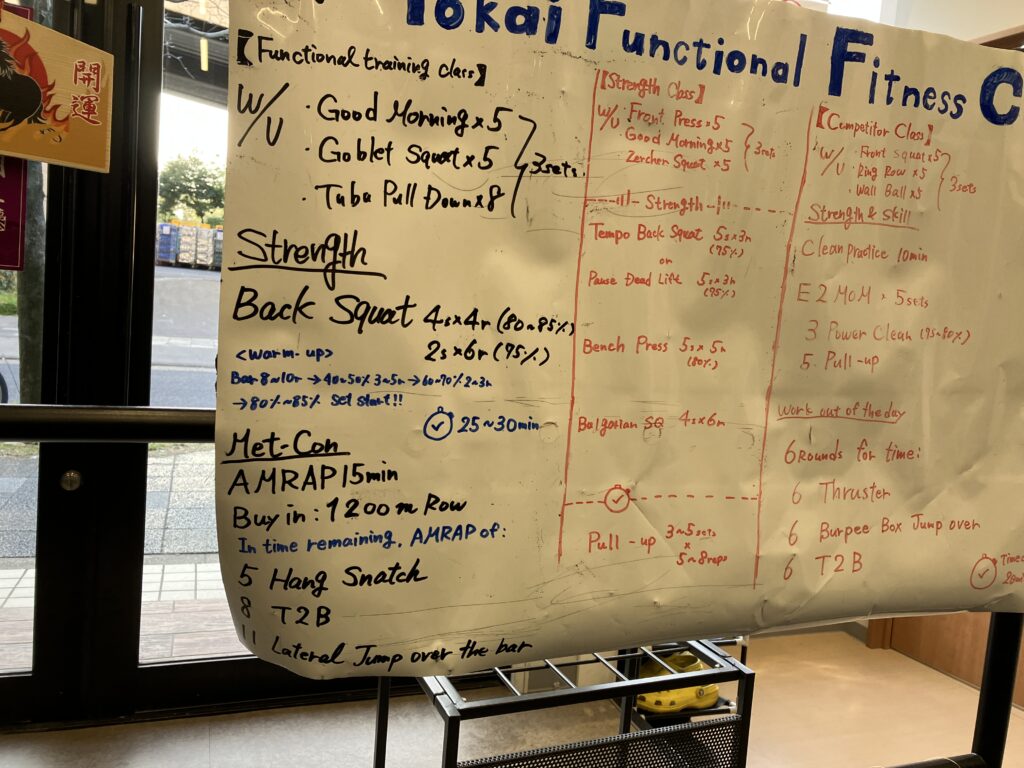 Tokai Functional Fitness C
開運
【Functional training class】
W/U
・Good Morning×5
・Goblet Squat×5
・Tube Pull Down×8
3sets.
Strength
Back Squat 4s×4r (80~85%)
2s×6r (75%)
<warm-up>
Bar 8~10r → 40~50% 3~5r → 60~70% 2~3r
→ 80%~85% Set start!!
25~30min
Met-Con
AMRAP 15min
Buy in: 1200m Row
In time remaining, AMRAP of:
5 Hang Snatch
8 T2B
11 Lateral Jump over the bar
【Strength Class】
W/U
・Front Press×5
・Good Morning×5
Zercher Squat×5
3sets
Strength
Tempo Back Squat 5s×3r
(75%)
or
Pause Dead Lift 5s×3r
(75%)
Bench Press 5s×5r
(80%)
Bulgarian SQ 4s×6r
Pull-up 3~5sets
×
5~8reps
【Competitor Class】
W/U
・Front squat×5
・Ring Row×5
・Wall Ball×5
3sets
Strength & skill
Clean practice 10min
E2MOM × 5sets
3 Power Clean (75~80%)
5 Pull-up
Work out of the day
6 Rounds for time:
6 Thruster
6 Burpee Box Jump over
6 T2B
Time